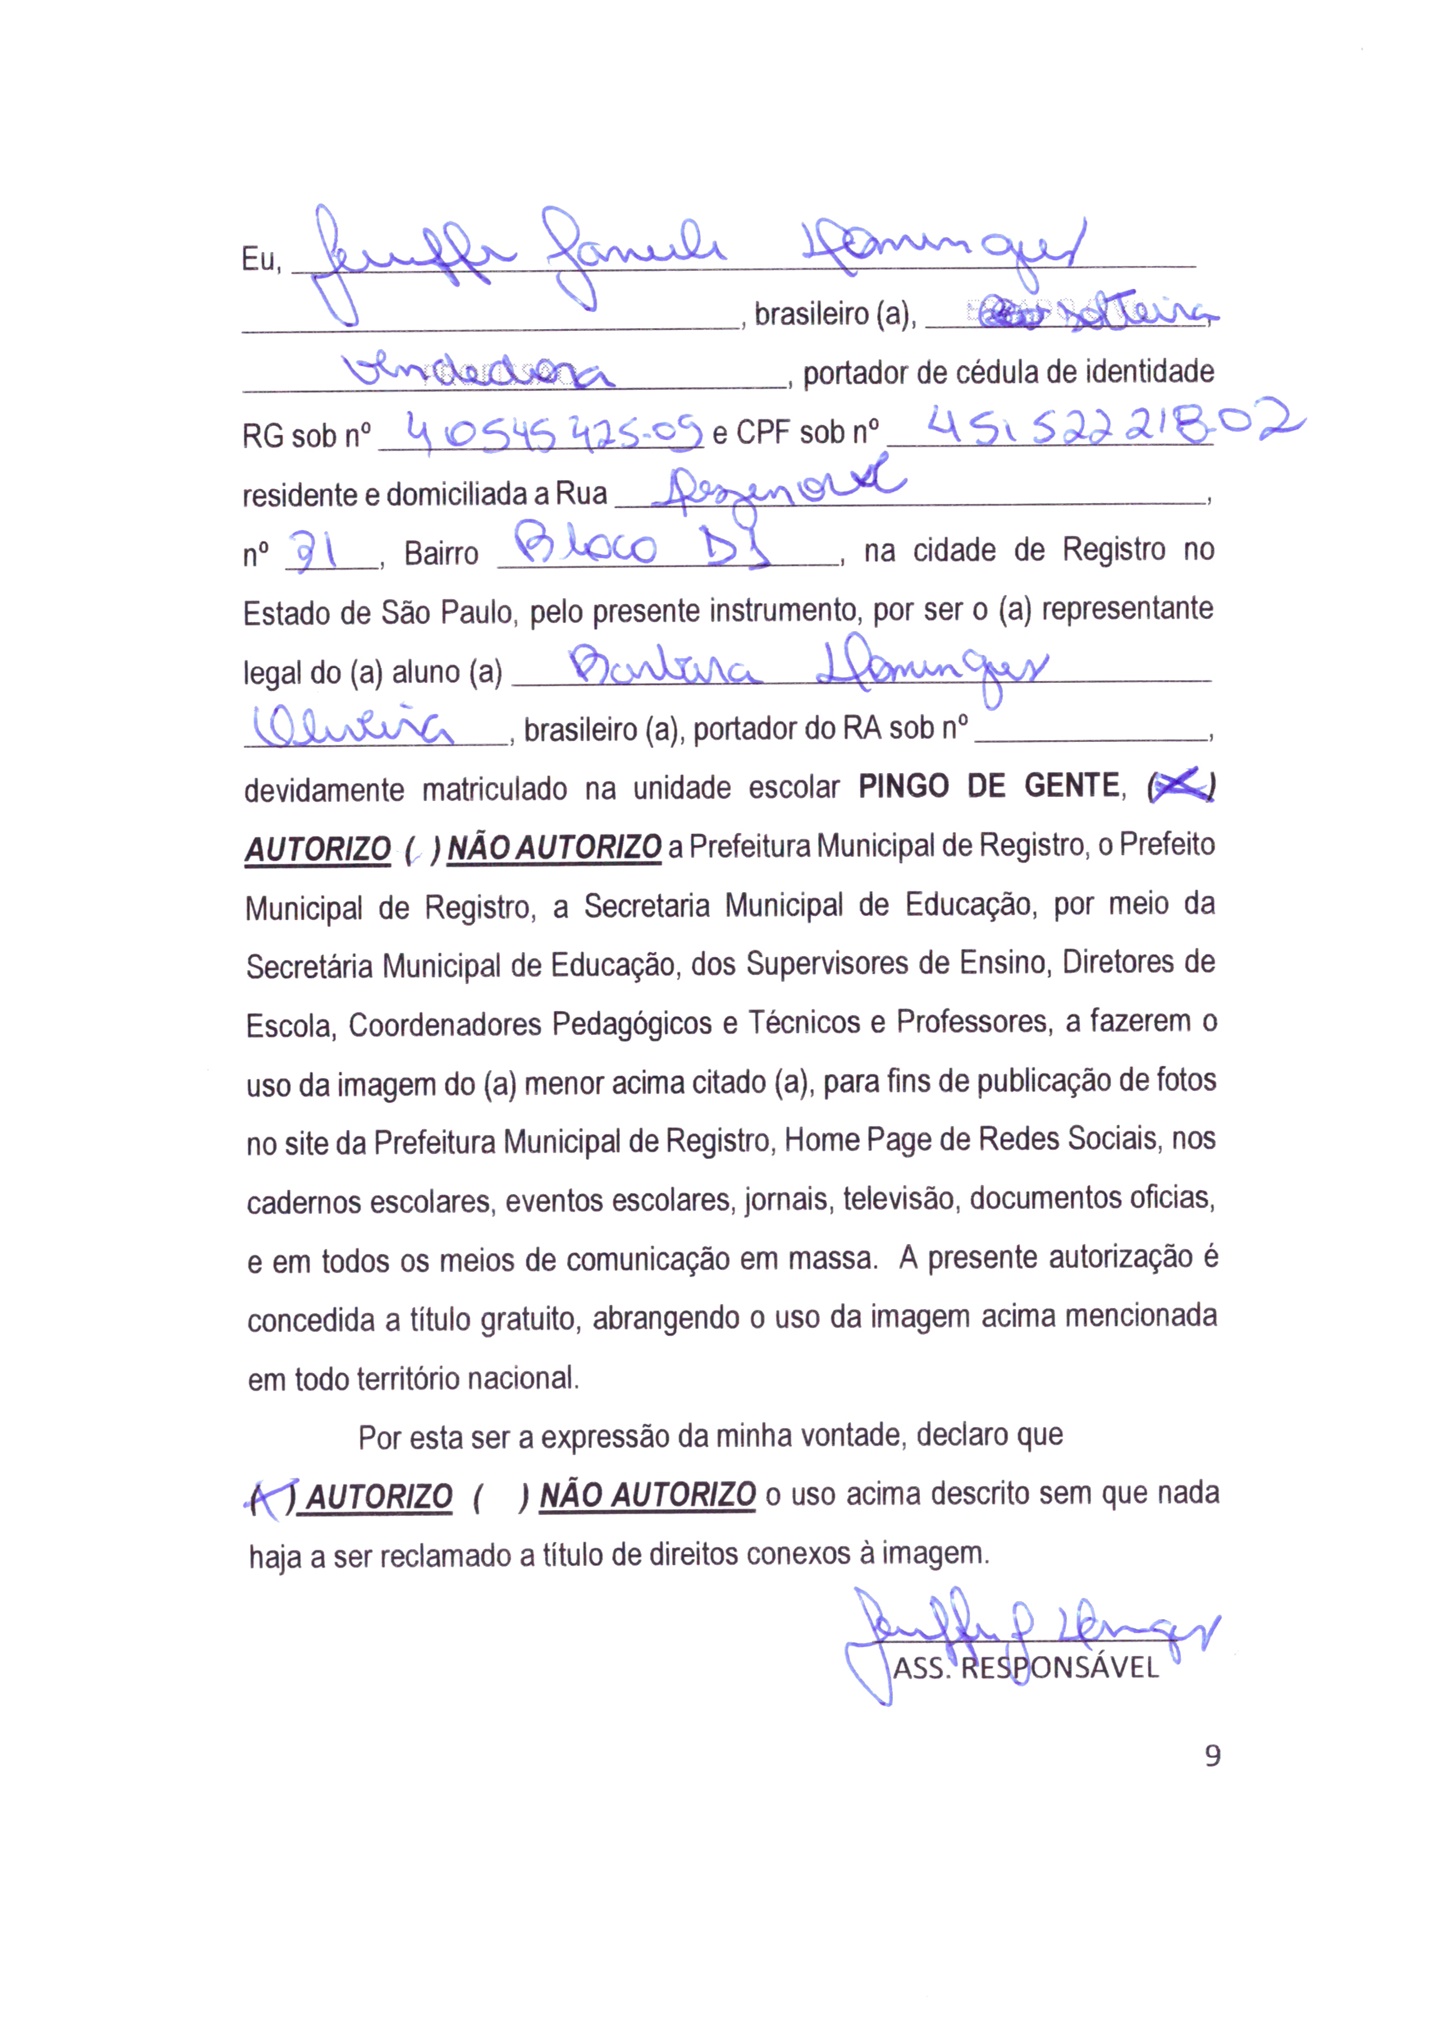 Eu, Jeniffer Daniele Domingues
, brasileiro (a), solteira,
vendedora, portador de cédula de identidade
RG sob nº 410545425-09 e CPF sob nº 451522218-02
residente e domiciliada a Rua
nº 31, Bairro Bloco D, na cidade de Registro no
Estado de São Paulo, pelo presente instrumento, por ser o (a) representante
legal do (a) aluno (a) Barbara Domingues
Oliveira, brasileiro (a), portador do RA sob nº ,
devidamente matriculado na unidade escolar PINGO DE GENTE, (X)
AUTORIZO ( ) NÃO AUTORIZO a Prefeitura Municipal de Registro, o Prefeito
Municipal de Registro, a Secretaria Municipal de Educação, por meio da
Secretária Municipal de Educação, dos Supervisores de Ensino, Diretores de
Escola, Coordenadores Pedagógicos e Técnicos e Professores, a fazerem o
uso da imagem do (a) menor acima citado (a), para fins de publicação de fotos
no site da Prefeitura Municipal de Registro, Home Page de Redes Sociais, nos
cadernos escolares, eventos escolares, jornais, televisão, documentos oficias,
e em todos os meios de comunicação em massa. A presente autorização é
concedida a título gratuito, abrangendo o uso da imagem acima mencionada
em todo território nacional.
Por esta ser a expressão da minha vontade, declaro que
(X) AUTORIZO ( ) NÃO AUTORIZO o uso acima descrito sem que nada
haja a ser reclamado a título de direitos conexos à imagem.
ASS. RESPONSÁVEL
9